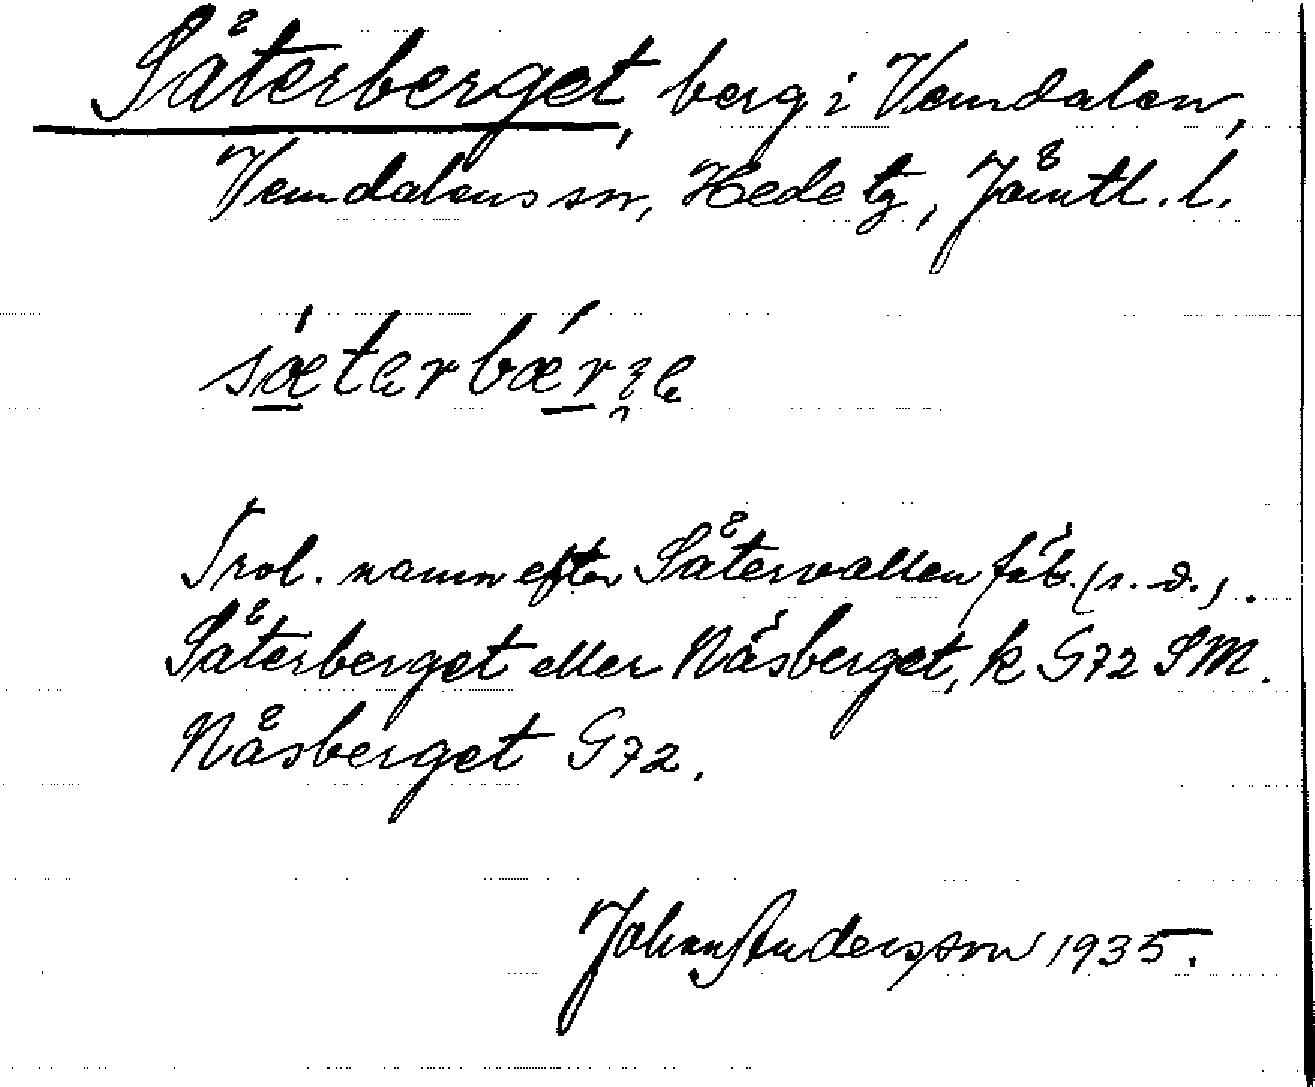 Säterberget, berg i Vemdalen,
Vemdalens sn, Hede tg, Jämtl. l.
sæterbærge
Trol. namn efter Sätervallen fäb. (s. d.).
Säterberget eller Näsberget, k G72 SM.
Näsberget G72.
Johan Andersson 1935.